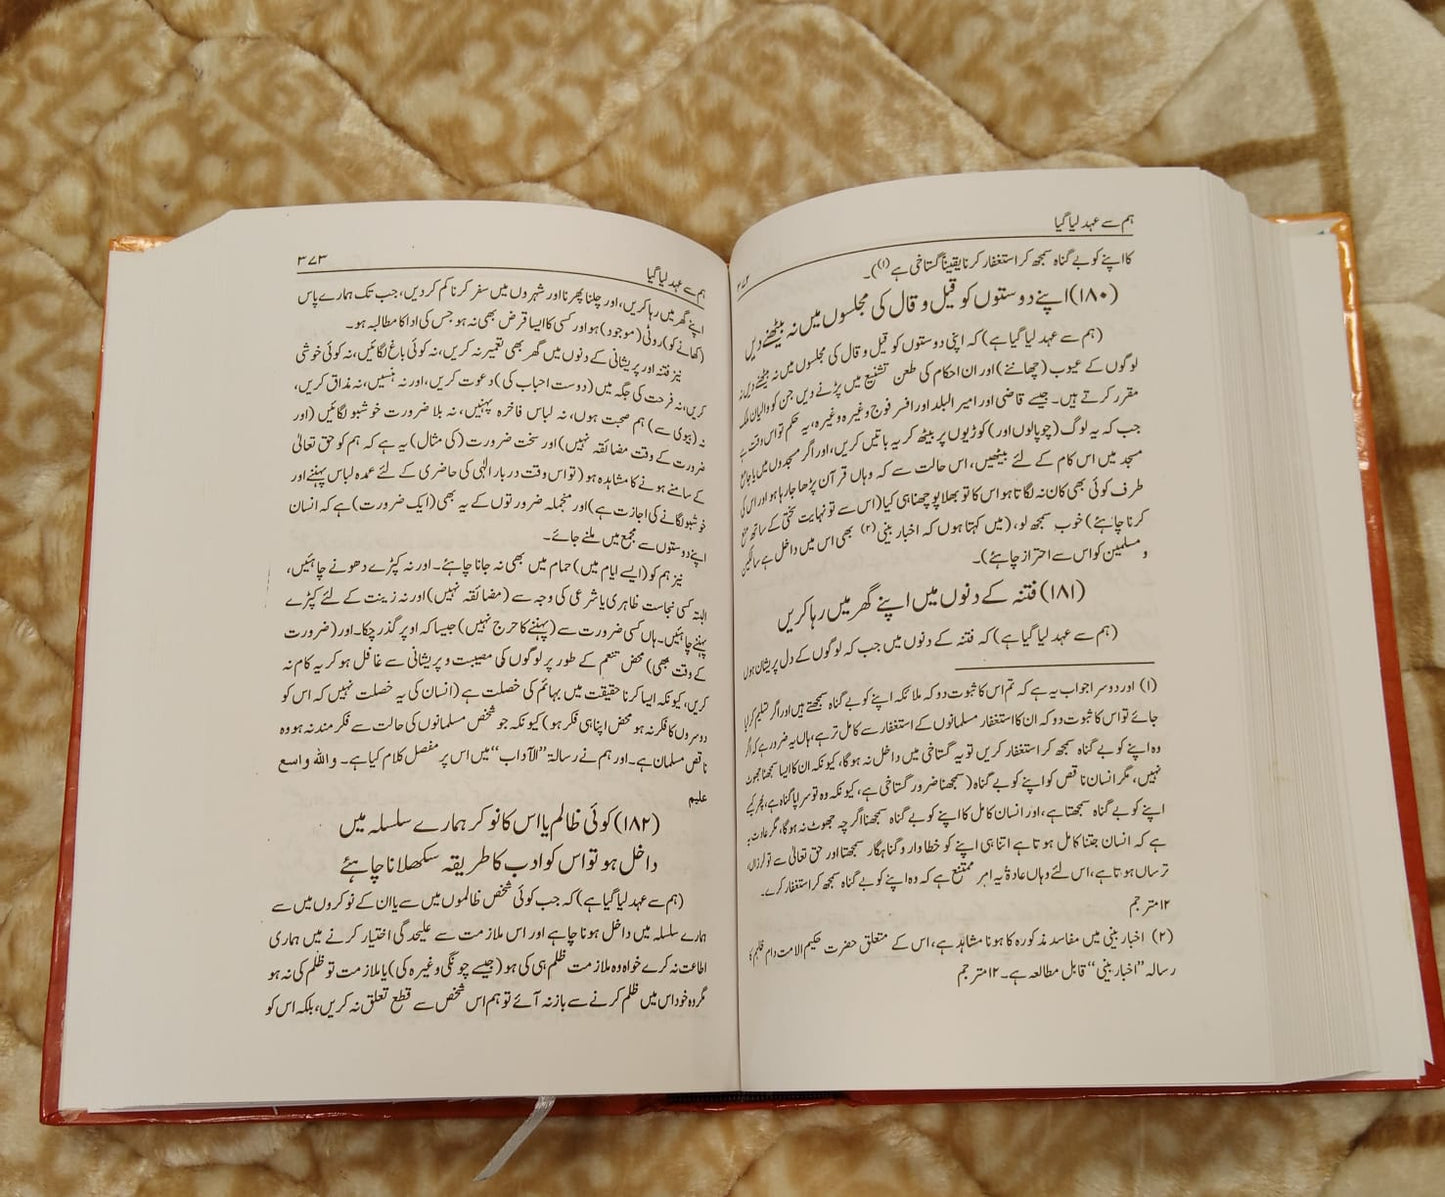 ہم سے عہد لیا گیا
کا اپنے کو بے گناہ سمجھ کر استغفار کرنا یقیناً گستاخی ہے (۱)۔
(۱۸۰) اپنے دوستوں کو قیل و قال کی مجلسوں میں نہ بیٹھنے دیں
(ہم سے عہد لیا گیا ہے) کہ اپنی دوستوں کو قیل و قال کی مجلسوں میں نہ بیٹھنے دیں نہ
لوگوں کے عیوب (چھاننے) اور ان احکام کی طعن تشنیع میں پڑنے دیں جن کو والیان ملک
مقرر کرتے ہیں۔ جیسے قاضی اور امیر البلد اور افسر فوج وغیرہ وغیرہ، یہ حکم تو اس وقت ہے
جب کہ یہ لوگ (چوپالوں اور) کوڑیوں پر بیٹھ کر یہ باتیں کریں، اور اگر مسجدوں میں یا جامع
مسجد میں اس کام کے لئے بیٹھیں، اس حالت سے کہ وہاں قرآن پڑھا جا رہا ہو اور اس کی
طرف کوئی بھی کان نہ لگاتا ہو اس کا تو بھلا پوچھنا ہی کیا (اس سے تو نہایت سختی کے ساتھ منع
کرنا چاہئے) خوب سمجھ لو، (میں کہتا ہوں کہ اخبار بینی (۲) بھی اس میں داخل ہے سالکین
و مسلمین کو اس سے احتراز چاہئے)۔
(۱۸۱) فتنہ کے دنوں میں اپنے گھر میں رہا کریں
(ہم سے عہد لیا گیا ہے) کہ فتنہ کے دنوں میں جب کہ لوگوں کے دل پریشان ہوں
(۱) اور دوسرا جواب یہ ہے کہ تم اس کا ثبوت دو کہ ملائکہ اپنے کو بے گناہ سمجھتے ہیں اور اگر تسلیم کر لیا
جائے تو اس کا ثبوت دو کہ ان کا استغفار مسلمانوں کے استغفار سے کامل تر ہے، ہاں یہ ضرور ہے کہ اگر
وہ اپنے کو بے گناہ سمجھ کر استغفار کریں تو یہ گستاخی میں داخل نہ ہوگا، کیونکہ ان کا ایسا سمجھنا جھوٹ
نہیں، مگر انسان ناقص کو اپنے کو بے گناہ (سمجھنا ضرور گستاخی ہے، کیونکہ وہ تو سراپا گناہ ہے، پھر کیسے
اپنے کو بے گناہ سمجھتا ہے، اور انسان کامل کا اپنے کو بے گناہ سمجھنا اگرچہ جھوٹ نہ ہوگا، مگر عادت یہ
ہے کہ انسان جتنا کامل ہوتا ہے اتنا ہی اپنے کو خطا وار و گناہگار سمجھتا اور حق تعالیٰ سے تو لرزاں،
ترساں ہوتا ہے، اس لئے وہاں عادۃً یہ امر ممتنع ہے کہ وہ اپنے کو بے گناہ سمجھ کر استغفار کرے۔
۱۲ مترجم
(۲) اخبار بینی میں مفاسد مذکورہ کا ہونا مشاہد ہے، اس کے متعلق حضرت حکیم الامت دام ظلہم کا
رسالہ ”اخبار بینی“ قابل مطالعہ ہے۔ ۱۲ مترجم
ہم سے عہد لیا گیا
۳۷۳
اپنے گھر میں رہا کریں، اور چلنا پھرنا اور شہروں میں سفر کرنا کم کر دیں، جب تک ہمارے پاس
(کھانے کو) روٹی (موجود) ہو اور کسی کا ایسا قرض بھی نہ ہو جس کی ادا کا مطالبہ ہو۔
نیز فتنہ اور پریشانی کے دنوں میں گھر بھی تعمیر نہ کریں، نہ کوئی باغ لگائیں، نہ کوئی خوشی
کریں، نہ فرحت کی جگہ میں (دوست احباب کی) دعوت کریں، اور نہ ہنسیں، نہ مذاق کریں،
نہ (بیوی سے) ہم صحبت ہوں، نہ لباس فاخرہ پہنیں، نہ بلا ضرورت خوشبو لگائیں (اور
ضرورت کے وقت مضائقہ نہیں) اور سخت ضرورت (کی مثال) یہ ہے کہ ہم کو حق تعالیٰ
کے سامنے ہونے کا مشاہدہ ہو (تو اس وقت دربار الٰہی کی حاضری کے لئے عمدہ لباس پہننے اور
خوشبو لگانے کی اجازت ہے) اور منجملہ ضرورتوں کے یہ بھی (ایک ضرورت) ہے کہ انسان
اپنے دوستوں سے مجمع میں ملنے جائے۔
نیز ہم کو (ایسے ایام میں) حمام میں بھی نہ جانا چاہئے۔ اور نہ کپڑے دھونے چاہئیں،
البتہ کسی نجاست ظاہری یا شرعی کی وجہ سے (مضائقہ نہیں) اور نہ زینت کے لئے کپڑے
پہننے چاہئیں۔ ہاں کسی ضرورت سے (پہننے کا حرج نہیں) جیسا کہ اوپر گذر چکا۔ اور (ضرورت
کے وقت بھی) محض تنعم کے طور پر لوگوں کی مصیبت و پریشانی سے غافل ہو کر یہ کام نہ
کریں، کیونکہ ایسا کرنا حقیقت میں بہائم کی خصلت ہے (انسان کی یہ خصلت نہیں کہ اس کو
دوسروں کا فکر نہ ہو محض اپنا ہی فکر ہو) کیونکہ جو شخص مسلمانوں کی حالت سے فکر مند نہ ہو وہ
ناقص مسلمان ہے۔ اور ہم نے رسالۃ ”الآداب“ میں اس پر مفصل کلام کیا ہے۔ واللہ واسع
علیم
(۱۸۲) کوئی ظالم یا اس کا نوکر ہمارے سلسلہ میں
داخل ہو تو اس کو ادب کا طریقہ سکھلانا چاہئے
(ہم سے عہد لیا گیا ہے) کہ جب کوئی شخص ظالموں میں سے یا ان کے نوکروں میں سے
ہمارے سلسلہ میں داخل ہونا چاہے اور اس ملازمت سے علیحدگی اختیار کرنے میں ہماری
اطاعت نہ کرے خواہ وہ ملازمت ظلم ہی کی ہو (جیسے چونگی وغیرہ کی) یا ملازمت تو ظلم کی نہ ہو
مگر وہ خود اس میں ظلم کرنے سے باز نہ آئے تو ہم اس شخص سے قطع تعلق نہ کریں، بلکہ اس کو